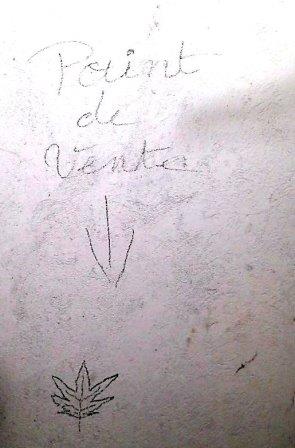 Point
de
Vente